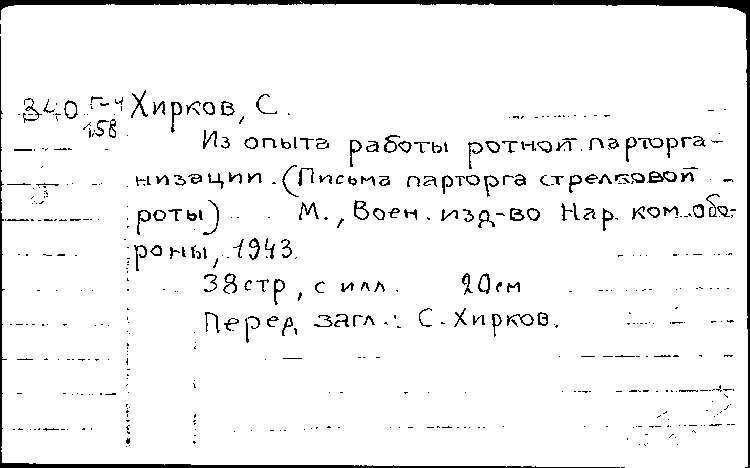 340 Г-ч Хирков, С.
158
Из опыта работы ротной парторга-
низации. (Письма парторга стрелковой
роты) М., Воен. изд-во Нар. ком. обо-
роны, 1943.
38 стр, с илл. 20 см
Перед загл.: С. Хирков.